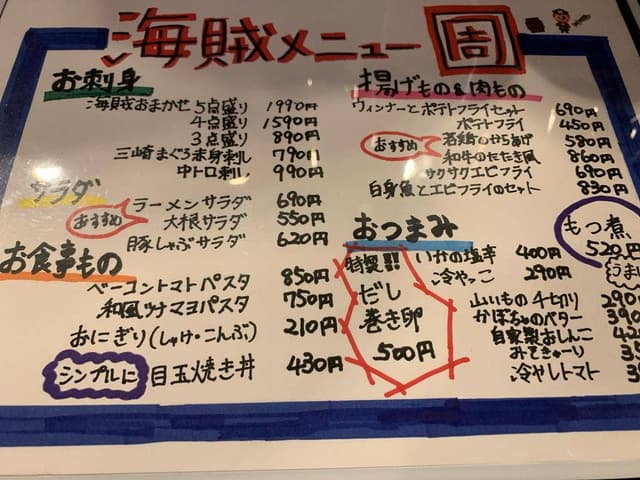 海賊メニュー 周
お刺身
海賊おまかせ 5点盛り 1990円
4点盛り 1590円
3点盛り 890円
三崎まぐろ赤身刺し 790円
中トロ刺し 990円
サラダ
ラーメンサラダ 690円
おすすめ 大根サラダ 550円
豚しゃぶサラダ 620円
お食事もの
ベーコントマトパスタ 850円
和風ツナマヨパスタ 750円
おにぎり(しゃけ・こんぶ) 210円
シンプルに 目玉焼き丼 430円
揚げもの&肉もの
ウィンナーとポテトフライセット 690円
ポテトフライ 450円
おすすめ 若鶏のからあげ 580円
和牛のたたき風 860円
サクサクエビフライ 690円
白身魚とエビフライのセット 830円
おつまみ
もつ煮
520円
うまい
特製!!
だし
巻き卵
500円
いかの塩辛 400円
冷やっこ 290円
山いもの千切り 290
かぼちゃのバター 390
自家製おしんこ
みそきゅーり
冷やしトマト